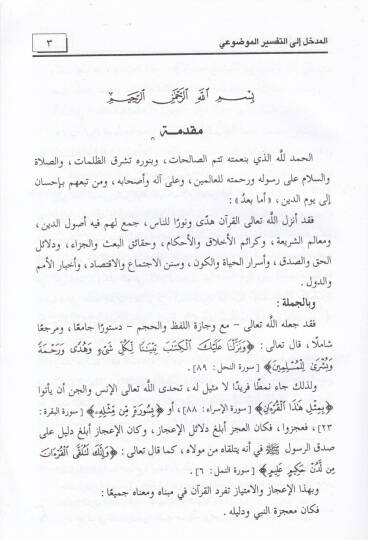 المدخل إلى التفسير الموضوعي
٣
بسم الله الرحمن الرحيم
مقدمة
الحمد لله الذي بنعمته تتم الصالحات، وبنوره تشرق الظلمات، والصلاة
والسلام على رسوله ورحمته للعالمين، وعلى آله وأصحابه، ومن تبعهم بإحسان
إلى يوم الدين، «أما بعد»:
فقد أنزل الله تعالى القرآن هدًى ونورًا للناس، جمع لهم فيه أصول الدين،
ومعالم الشريعة، وكرائم الأخلاق والأحكام، وحقائق البعث والجزاء، ودلائل
الحق والصدق، وأسرار الحياة والكون، وسنن الاجتماع والاقتصاد، وأخبار الأمم
والدول.
وبالجملة:
فقد جعله الله تعالى – مع وجازة اللفظ والحجم – دستورًا جامعًا، ومرجعًا
شاملًا، قال تعالى: ﴿وَنَزَّلْنَا عَلَيْكَ الْكِتَٰبَ تِبْيَٰنًا لِّكُلِّ شَيْءٍ وَهُدًى وَرَحْمَةً
وَبُشْرَىٰ لِلْمُسْلِمِينَ﴾ [سورة النحل: ٨٩].
ولذلك جاء نمطًا فريدًا لا مثيل له، تحدى الله تعالى الإنس والجن أن يأتوا
﴿بِمِثْلِ هَٰذَا الْقُرْءَانِ﴾ [سورة الإسراء: ٨٨]، أو ﴿بِسُورَةٍ مِّن مِّثْلِهِ﴾ [سورة البقرة:
٢٣]، فعجزوا، فكان العجز أبلغ دلائل الإعجاز، وكان الإعجاز أبلغ دليل على
صدق الرسول ﷺ في أنه يتلقاه من مولاه، كما قال تعالى: ﴿وَإِنَّكَ لَتُلَقَّى الْقُرْءَانَ
مِن لَّدُنْ حَكِيمٍ عَلِيمٍ﴾ [سورة النمل: ٦].
وبهذا الإعجاز والامتياز تفرد القرآن في مبناه ومعناه جميعًا:
فكان معجزة النبي ودليله.